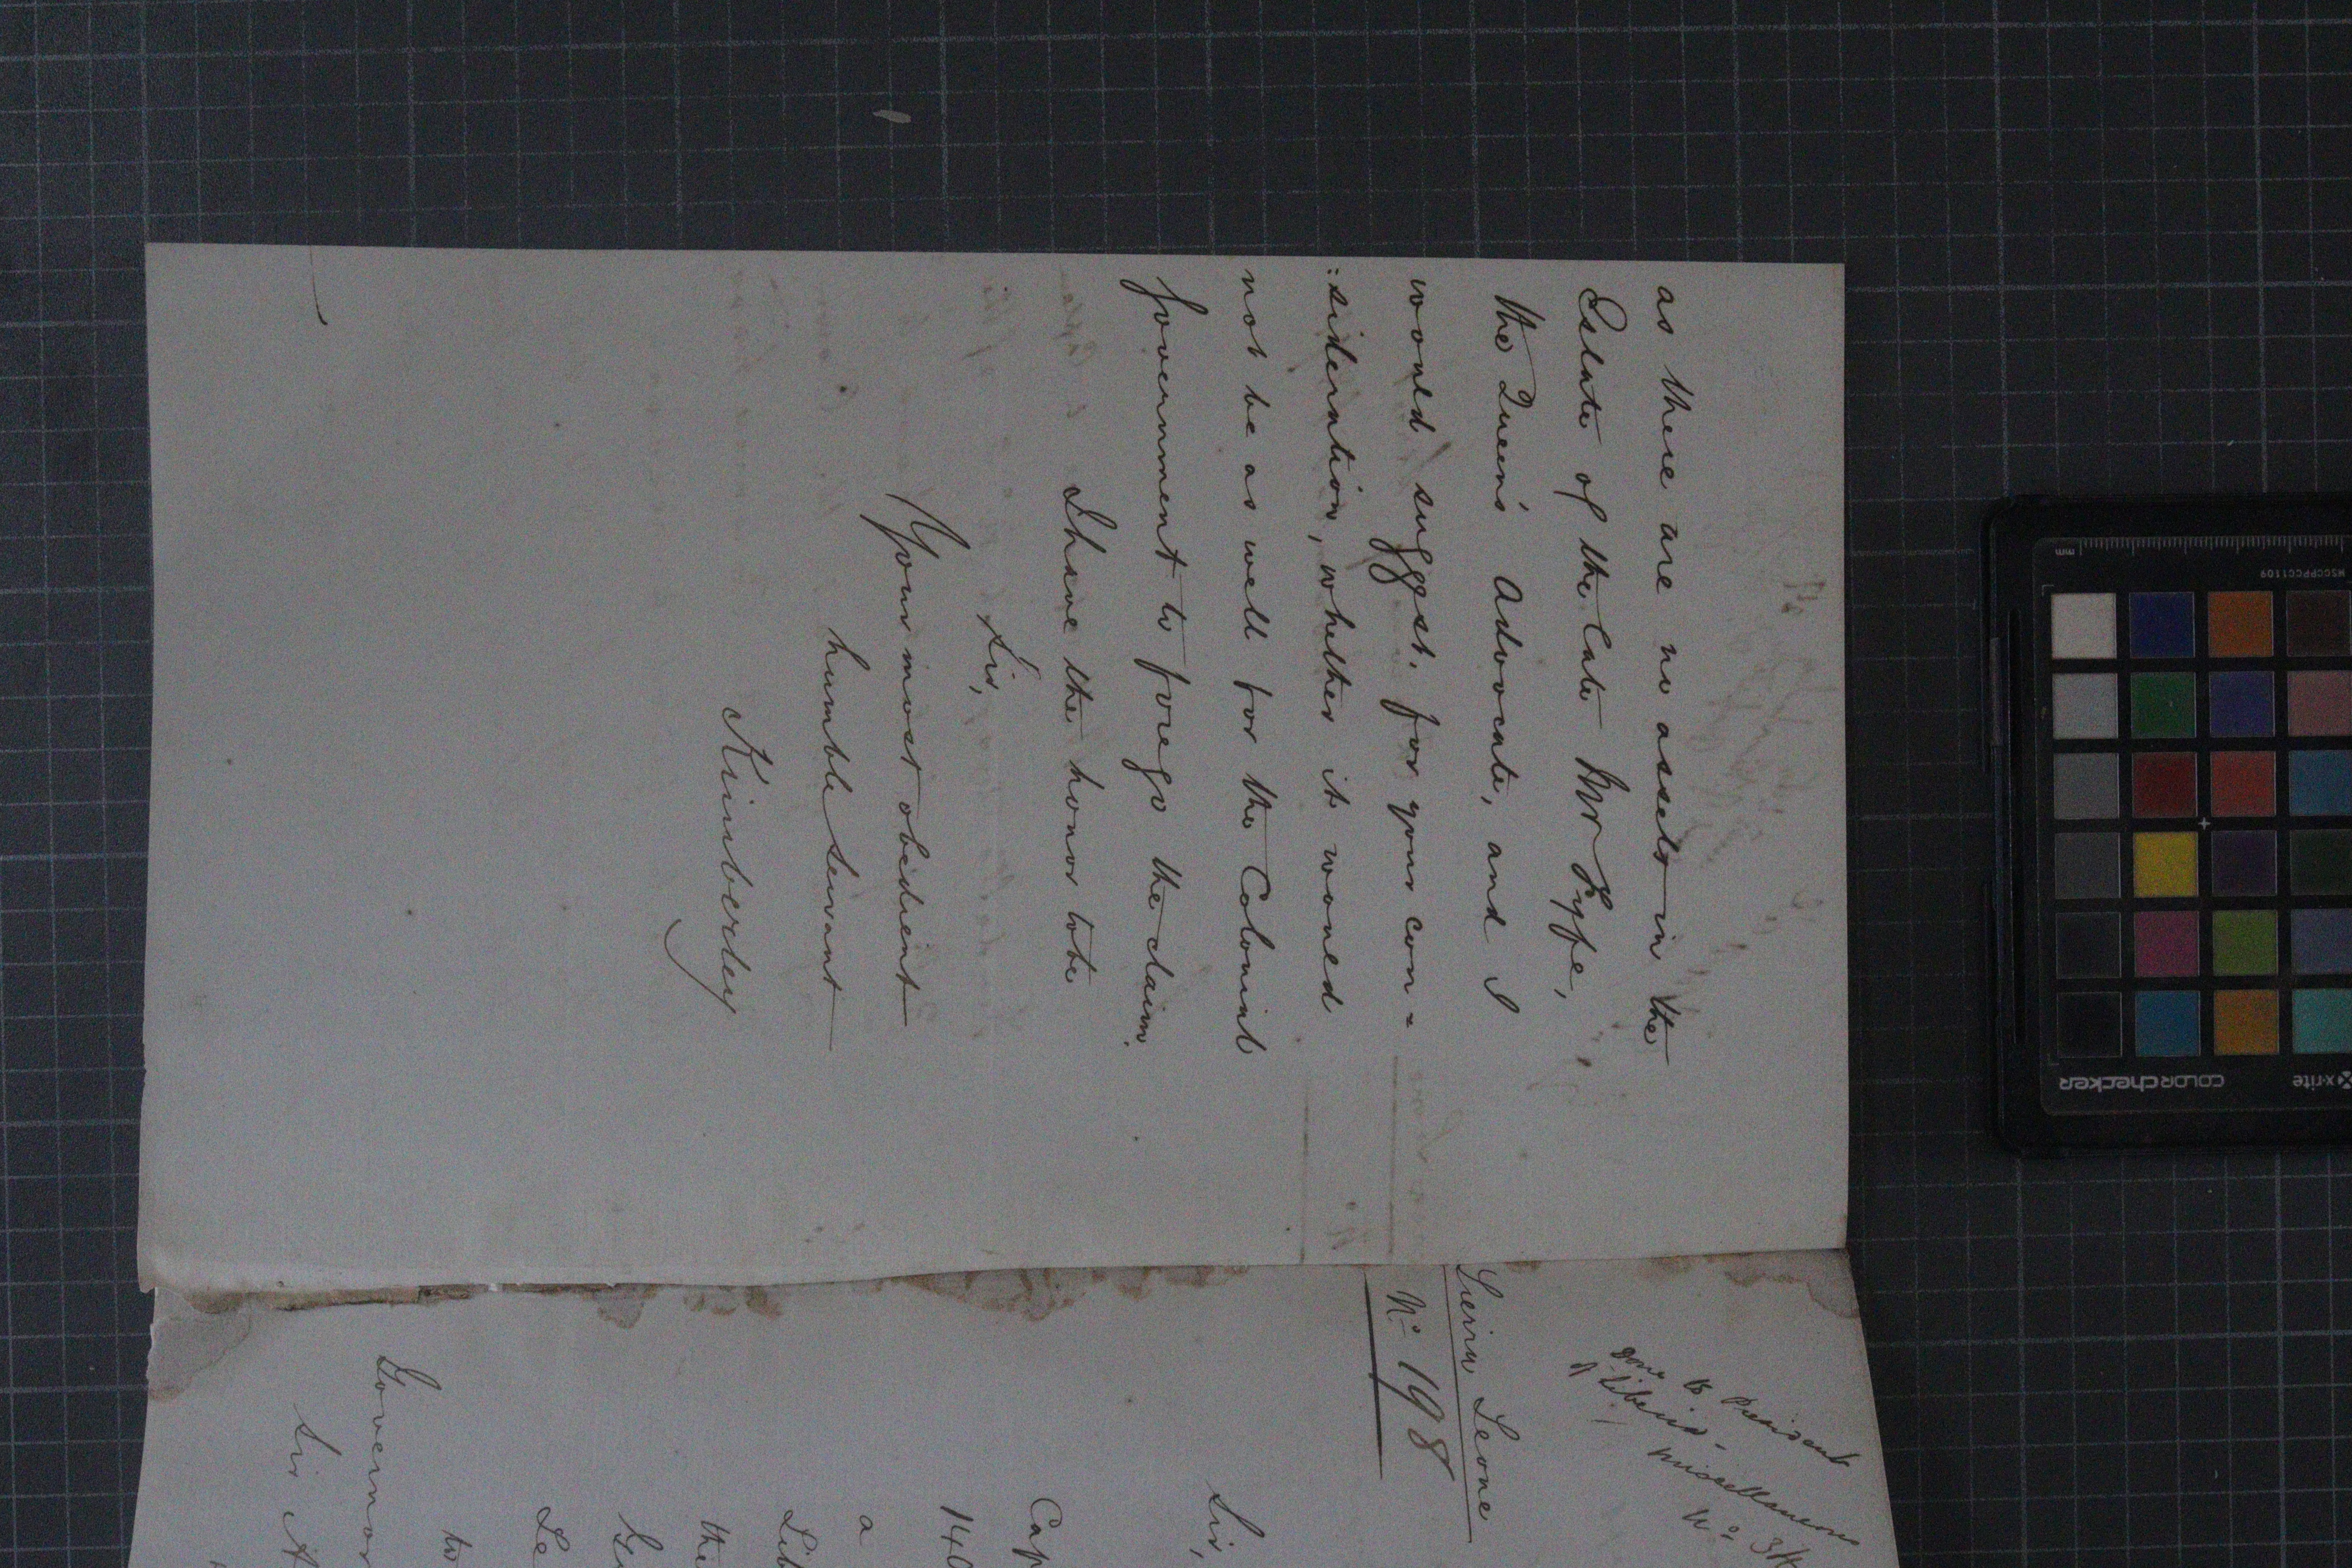 as there are no assets in the
Estate of the late Mr Fyfe,
the Queen's Advocate, and I
would suggest, for your con=
:sideration, whether it would
not be as well for the Colonial
Government to forego the claim.
I have the honor to be
Sir,
Your most obedient
humble Servant
Kimberley
done to President
of Liberia.
Miscellaneous
No.
Sierra Leone
No. 198
Sir,
Cap
140
a
Lib
the
Le
to
Governor
Sir A
mm
MSCCPPCC1109
x-rite
colorchecker